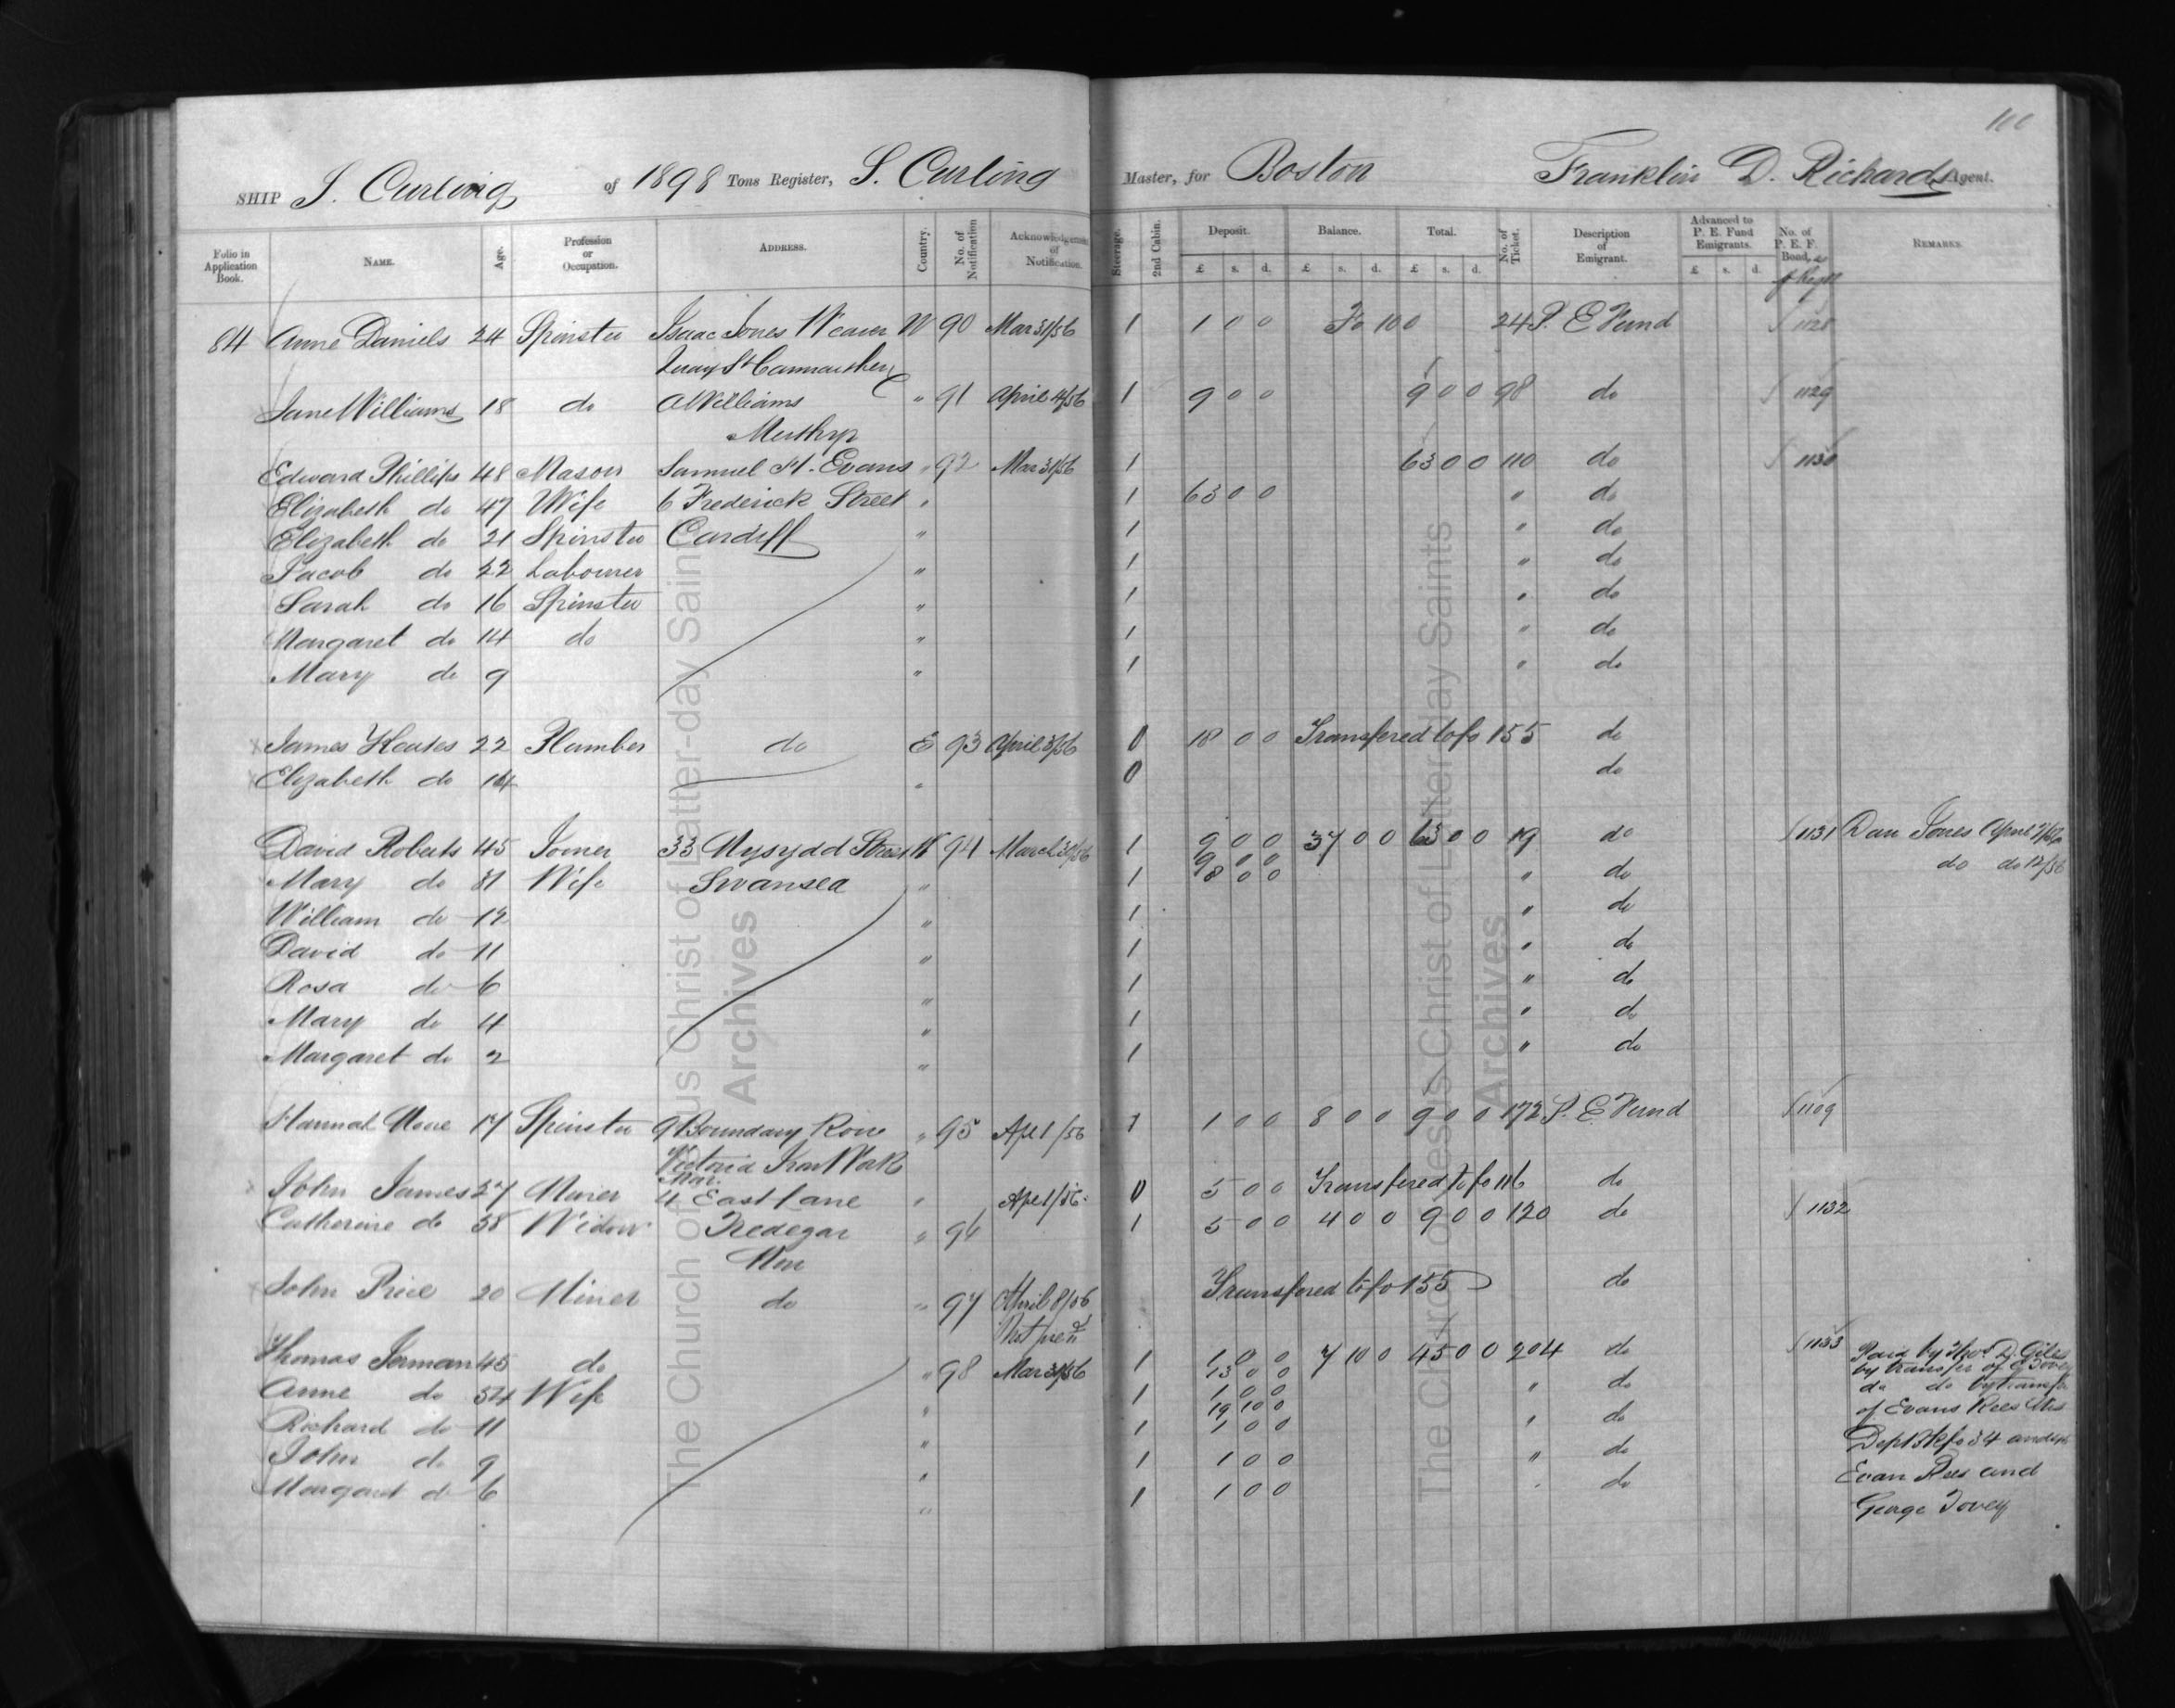 100
SHIP S. Curling of 1898 Tons Register, S. Curling Master, for Boston Franklin D. Richards Agent.
Folio in Application Book. NAME. Age. Profession or Occupation. ADDRESS. Country. No. of Notification Acknowledgement of Notification. Steerage. 2nd Cabin. Deposit. £ s. d. Balance. £ s. d. Total. £ s. d. No. of Ticket. Description of Emigrant. Advanced to P. E. Fund Emigrants. £ s. d. No. of P. E. F. Bond, REMARKS.
84 Anne Daniels 24 Spinster Isaac Jones Weaver W 90 Mar 31/56 1 1 0 0 Fo 100 24 P. E Fund 1128
Quay St Carmarthen
Jane Williams 18 do Williams " 91 April 4/56 1 9 0 0 9 0 0 98 do 1129
Merthyr
Edward Phillips 48 Mason Samuel H. Evans " 92 Mar 31/56 1 63 0 0 110 do 1130
Elizabeth do 47 Wife 6 Frederick Street " 1 63 0 0 " do
Elizabeth do 21 Spinster Cardiff " 1 " do
Jacob do 22 Labourer " 1 " do
Sarah do 16 Spinster " 1 " do
Margaret do 14 do " 1 " do
Mary do 9 " 1 " do
James 22 Plumber do E 93 April 3/56 0 18 0 0 Transfered to fo 155 do
Elizabeth do " 0 do
David Roberts 45 Joiner 33 Street W 94 March 31/56 1 9 0 0 37 0 0 63 0 0 19 do 1131 Dan Jones April
9 0 0 do do 12/56
Mary do 31 Wife Swansea " 1 8 0 0 " do
William do 12 " 1 " do
David do 11 " 1 " do
Rosa do 6 " 1 " do
Mary do 4 " 1 " do
Margaret do 2 " 1 " do
Hannah 17 Spinster 9 Boundary Row " 95 Apl 1/56 1 1 0 0 8 0 0 9 0 0 172 P. E Fund 1109
Victoria Iron Work
Mon.
John James 27 Miner 4 East Lane " Apl 1/56 0 5 0 0 Transfered to fo 116 do
Catherine do 58 Widow Tredegar " 96 1 5 0 0 4 0 0 9 0 0 120 do 1132
Mon
John Price 20 Miner do " 97 April 8/56 Transfered to fo 155 do
Thomas Jerman 45 do " 98 Mar 31/56 1 1 0 0 7 10 0 45 0 0 204 do 1133 Paid by D. Giles
13 0 0 by transfer of G Tovey
Anne do 54 Wife " 1 1 0 0 " do do do by transfer
19 10 0 of Evans Rees
Richard do 11 " 1 1 0 0 " do
John do 9 " 1 1 0 0 " do 34
Margaret do 6 " 1 1 0 0 " do Evan Rees and
George Tovey
The Church of Jesus Christ of Latter-day Saints
Archives
The Church of Jesus Christ of Latter-day Saints
Archives